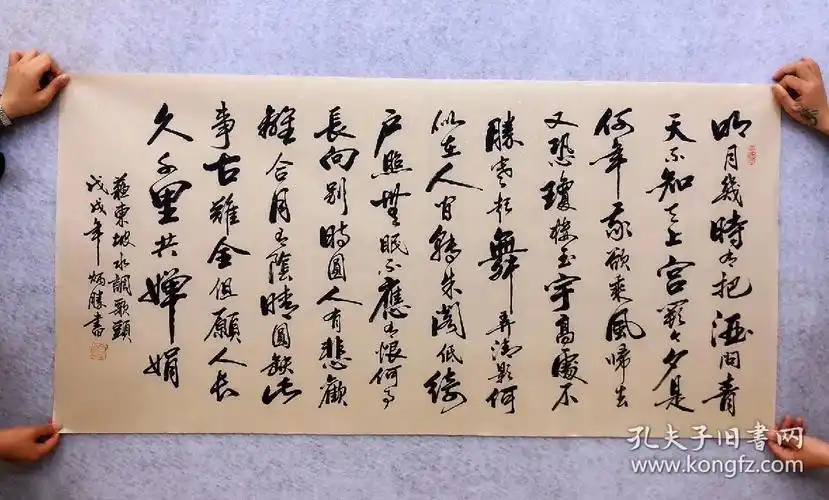 明月幾時有把酒問青
天不知天上宮闕今夕是
何年我欲乘風歸去
又恐瓊樓玉宇高處不
勝寒起舞弄清影何
似在人間轉朱閣低綺
戶照無眠不應有恨何事
長向別時圓人有悲歡
離合月有陰晴圓缺此
事古難全但願人長
久千里共嬋娟
蘇東坡水調歌頭
戊戌年炳勝書
孔夫子旧书网
www.kongfz.com